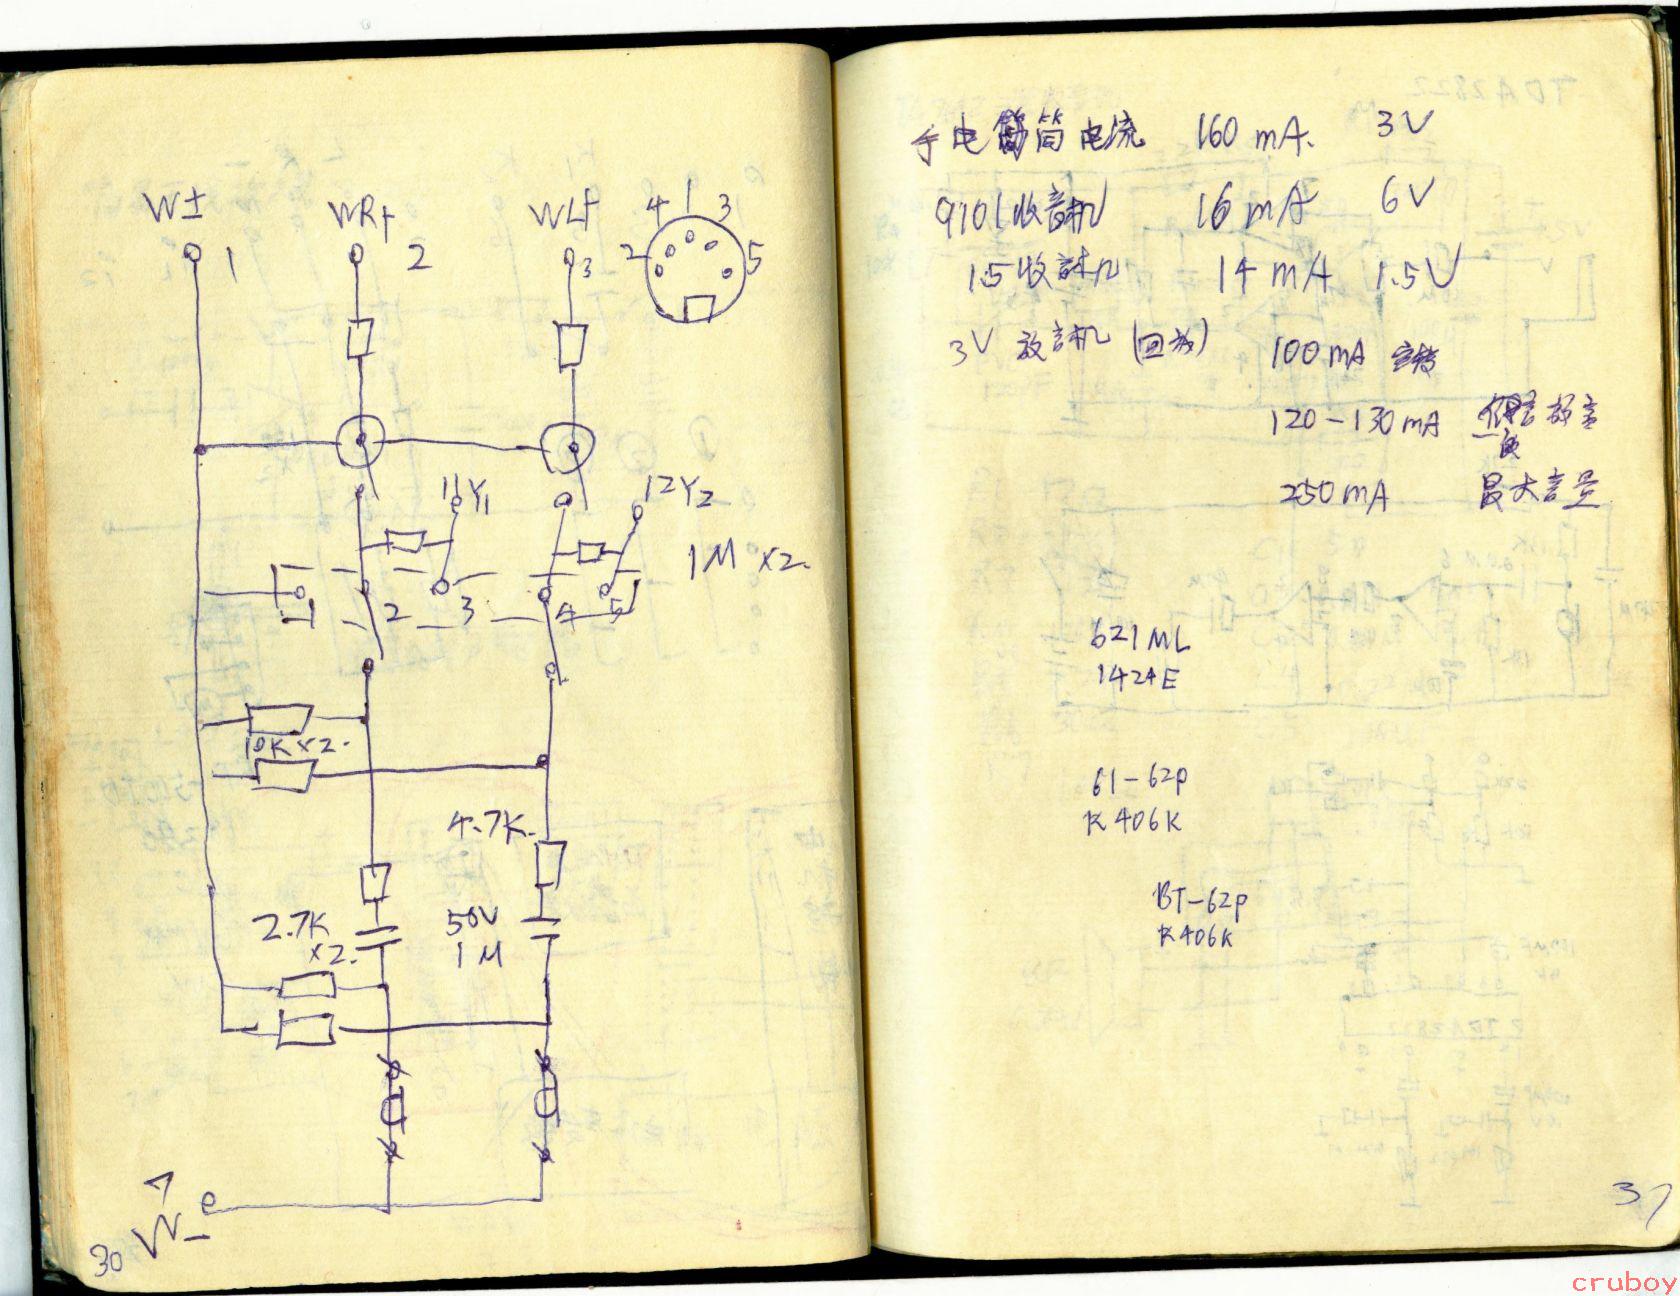 W± WR+ WL+
1 2 3
4 1 3
2 5
11Y1 12Y2
1M ×2.
1 2 3 4 5
10K×2.
4.7K.
2.7K
×2.
50V
1M
7
W-
30
手电筒电流 160 mA. 3V
9101收音机 16 mA 6V
1.5收音机 14 mA 1.5V
3V 放音机 (回放) 100 mA 空转
120-130 mA 放音
250 mA 最大音量
621ML
1424E
61-62p
K406K
BT-62p
K406K
31
cruboy